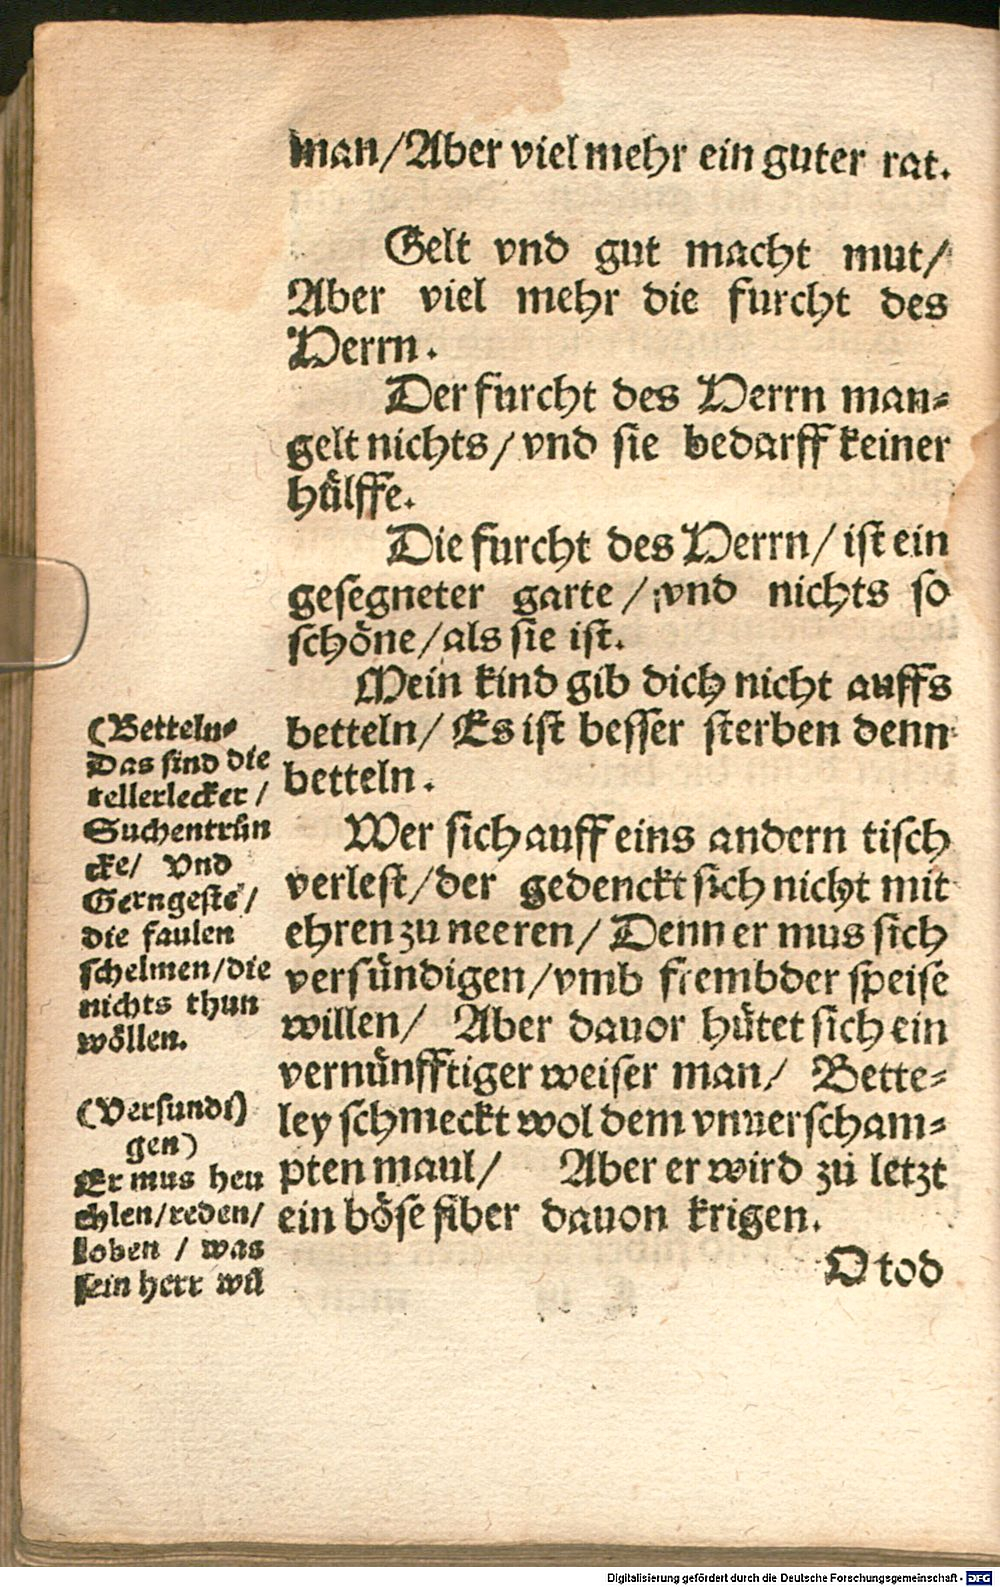 man/Aber viel mehr ein guter rat.
Gelt vnd gut macht mut/
Aber viel mehr die furcht des
Herrn.
Der furcht des Herrn man⸗
gelt nichts/vnd sie bedarff keiner
hülffe.
Die furcht des Herrn/ist ein
gesegneter garte/vnd nichts so
schöne/als sie ist.
Mein kind gib dich nicht auffs
betteln/Es ist besser sterben denn
betteln.
Wer sich auff eins andern tisch
verlest/der gedenckt sich nicht mit
ehren zu neeren/Denn er mus sich
versündigen/vmb frembder speise
willen/ Aber dauor hütet sich ein
vernünfftiger weiser man/ Bette⸗
ley schmeckt wol dem vnuerscham⸗
pten maul/ Aber er wird zu letzt
ein böse fiber dauon krigen.
O tod
(Betteln⸗
Das sind die
tellerlecker/
Suchentrün
cke/ vnd
Gerngeste/
die faulen
schelmen/die
nichts thun
wöllen.
(Versundi)
gen)
Er mus heu
chlen/reden/
loben / was
sein herr wil
Digitalisierung gefördert durch die Deutsche Forschungsgemeinschaft - DFG